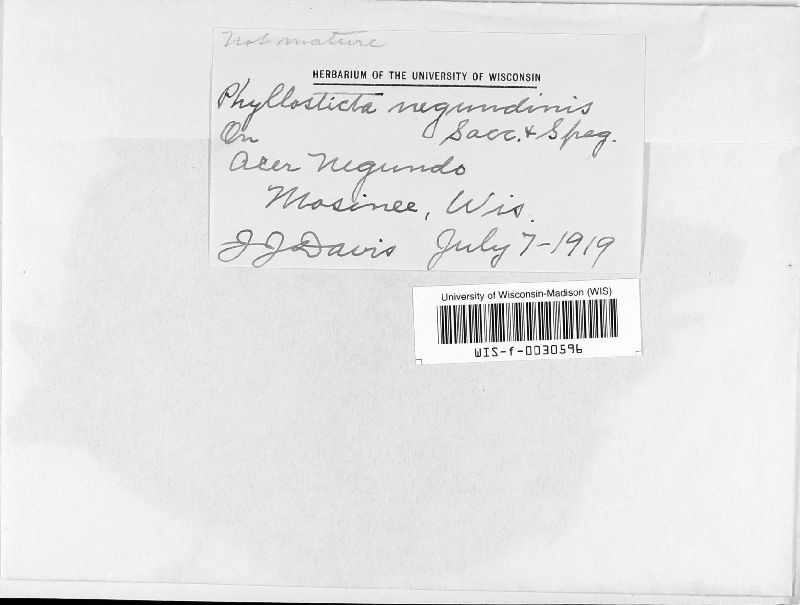 Not mature
HERBARIUM OF THE UNIVERSITY OF WISCONSIN
Phyllosticta negundinis
On Sacc. & Speg.
Acer Negundo
Mosinee, Wis.
J J Davis July 7-1919
University of Wisconsin-Madison (WIS)
WIS-f-0030596